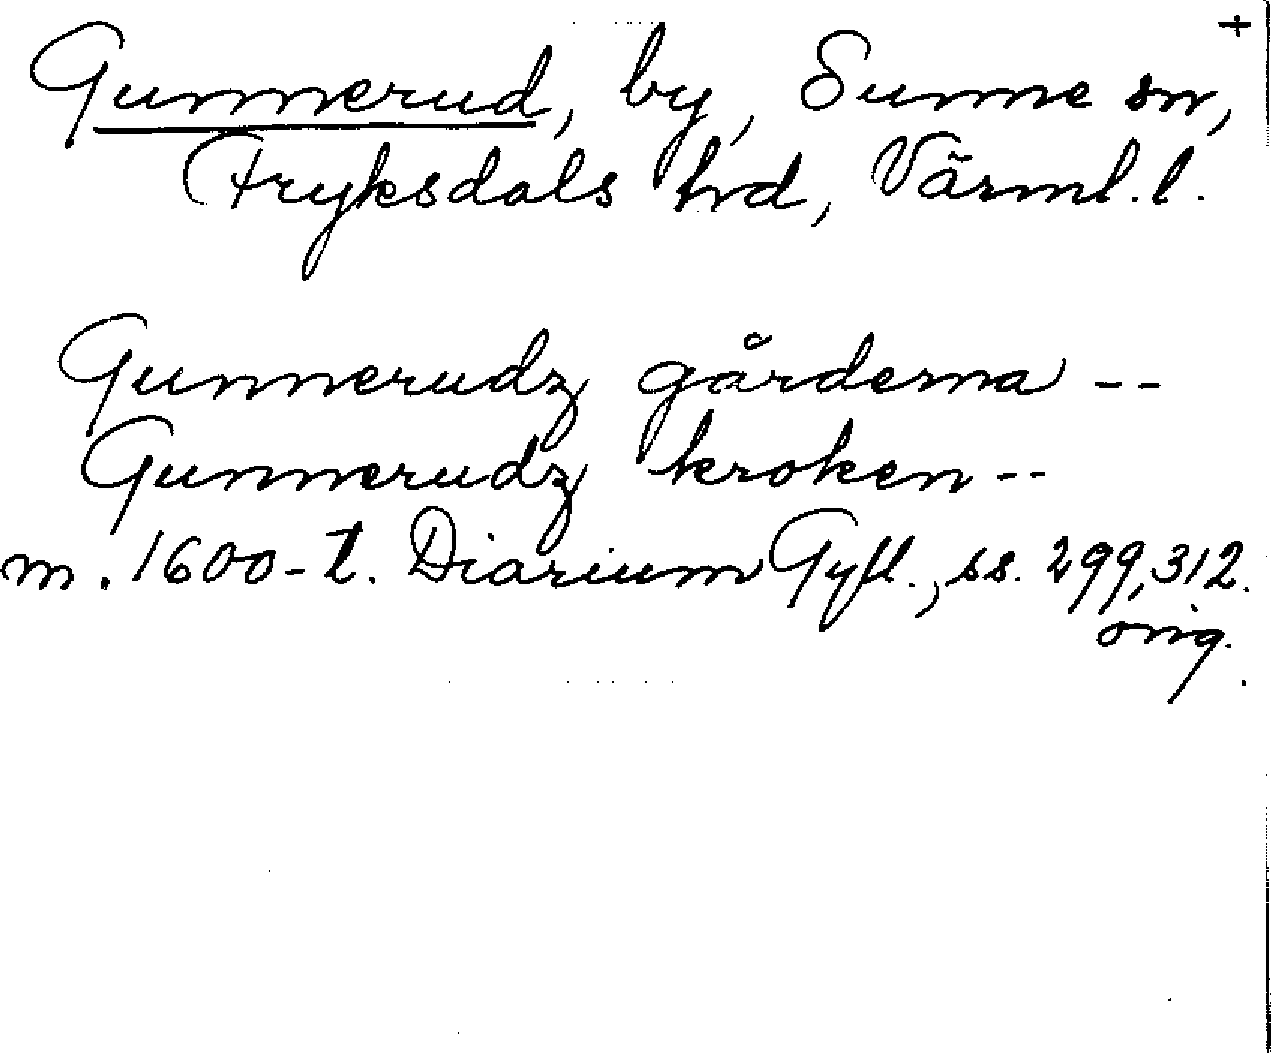 +
Gunnerud, by, Sunne sn,
Fryksdals hd, Värml. l.
Gunnerudz gårderna --
Gunnerudz kroken --
m. 1600-t. Diarium Gyll., ss. 299, 312.
orig.